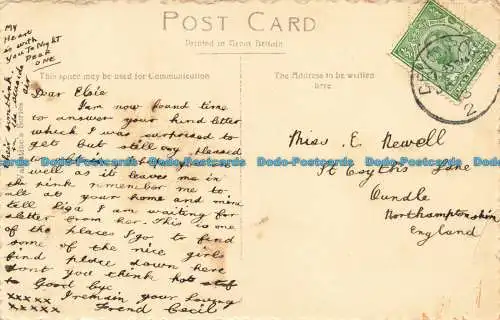 My
Heart
is with
you To Night
DEAR
ONE
POST CARD
Printed in Great Britain
This space may be used for Communication
The Address to be written
here
Valentine's Series
Dear Elsie
I am now found time
to answer your kind letter
which I was surprised to
get but still very pleased
to
well as it leaves me in
the pink remember me to
all at your home and mine
tell Liza I am waiting for
a letter from her. This is one
of the places I go to find
some of the nice girls
find place down here
dont you think hot stuf
to Good bye
xxxxx I remain your loving
xxxxx Frend Cecil
Miss E. Newell
St Osyths Lane
Oundle
Northamptonshire
England
Dodo-Postcards Dodo-Postcards Dodo-Postcards